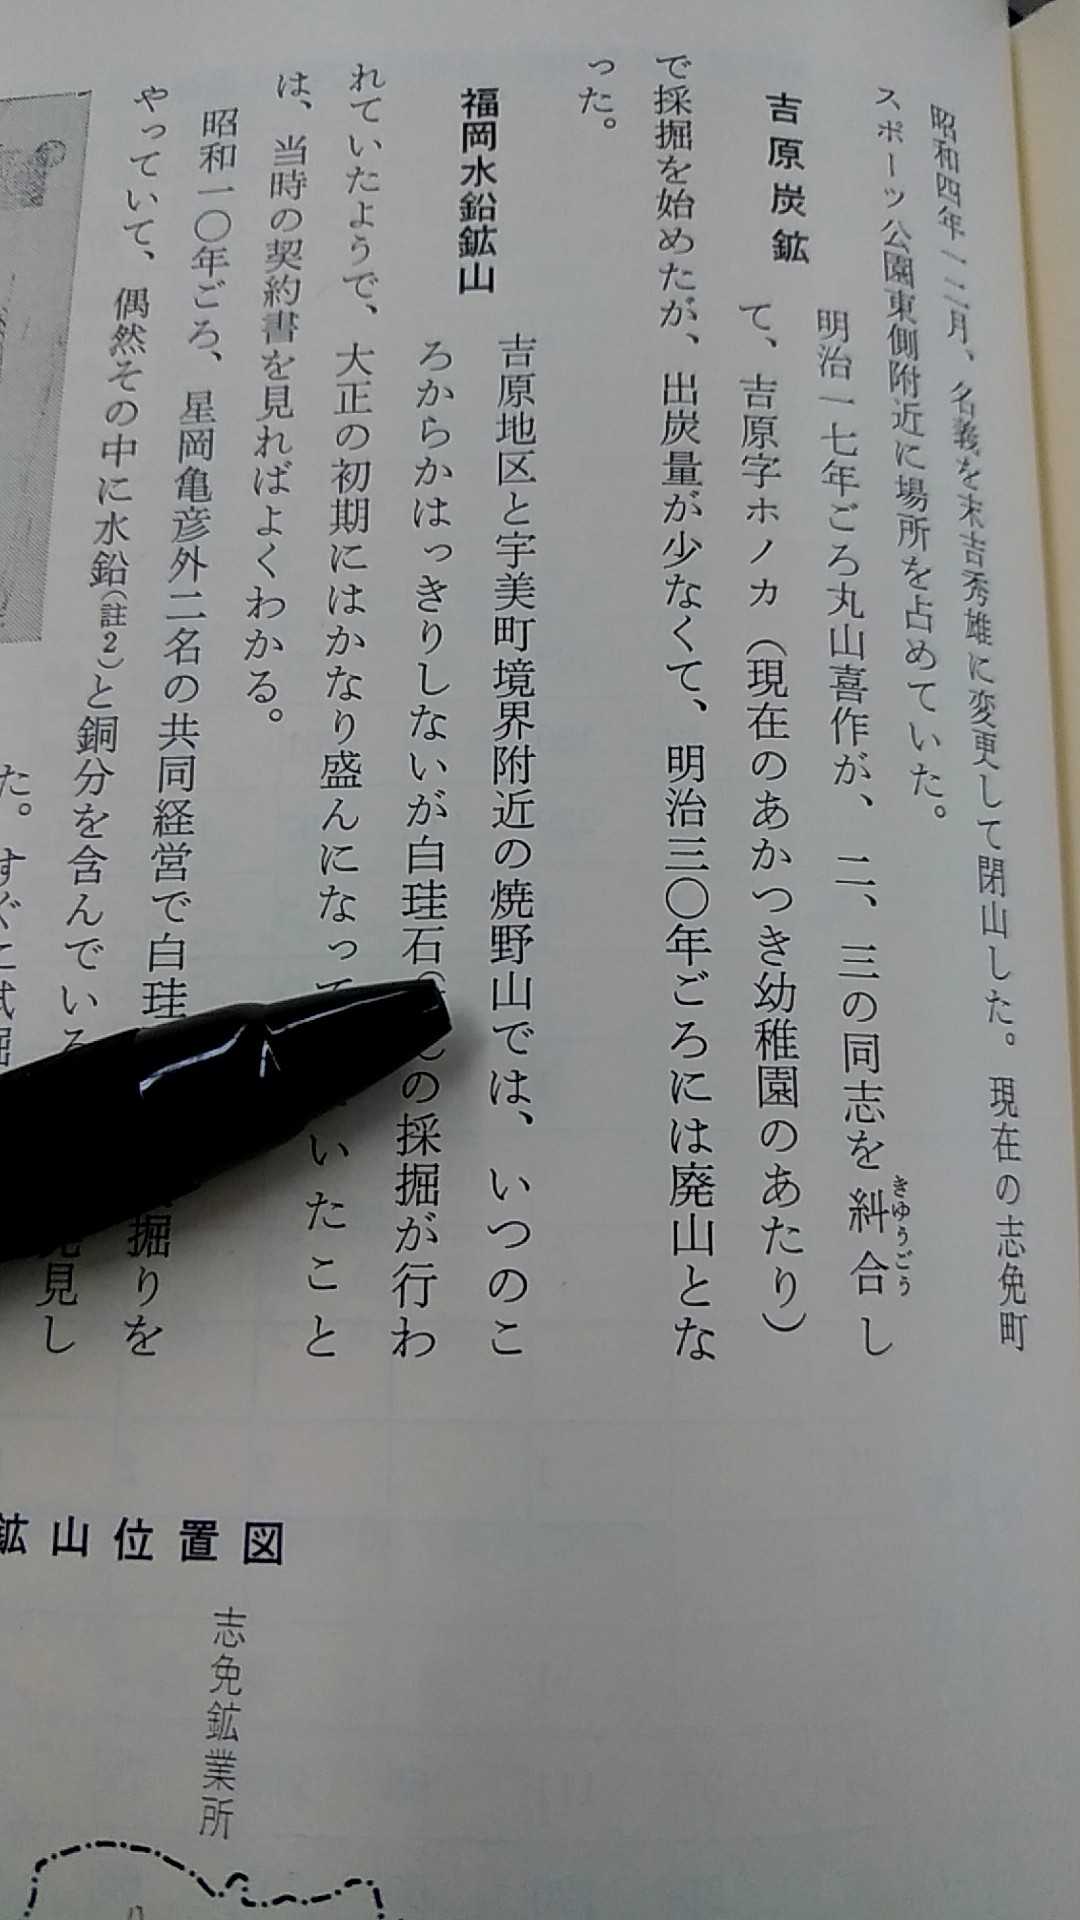 昭和四年一二月、名義を末吉秀雄に変更して閉山した。現在の志免町
スポーツ公園東側附近に場所を占めていた。
吉原炭鉱
明治一七年ごろ丸山喜作が、二、三の同志を糾合し
きゅうごう
て、吉原字ホノカ（現在のあかつき幼稚園のあたり）
で採掘を始めたが、出炭量が少なくて、明治三〇年ごろには廃山とな
った。
福岡水鉛鉱山
吉原地区と宇美町境界附近の焼野山では、いつのこ
ろからかはっきりしないが白珪石（の採掘が行わ
れていたようで、大正の初期にはかなり盛んになって いたこと
は、当時の契約書を見ればよくわかる。
昭和一〇年ごろ、星岡亀彦外二名の共同経営で白珪 掘りを
やっていて、偶然その中に水鉛（註2）と銅分を含んでいる 見し
た。すぐに試掘
鉱山位置図
志免鉱業所